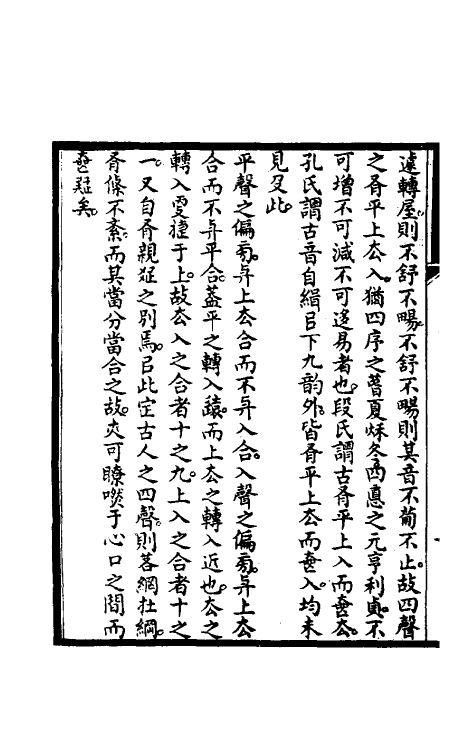 遠轉屋則不舒不暢不舒不暢則其音不葡不止故四聲
之有平上厺入猶四序之萅夏秌冬四悳之元亨利貞不
可增不可減不可迻易者也段氏謂古有平上入而無厺
孔氏謂古音自緝㠯下九韵外皆有平上厺而無入均未
見及此
平聲之偏旁與上厺合而不與入合入聲之偏旁與上厺
合而不與平合葢平之轉入遠而上厺之轉入近也厺之
轉入更捷于上故厺入之合者十之九上入之合者十之
一又自有親疏之別焉㠯此定古人之四聲則若網在綱
有條不紊而其當分當合之故亦可瞭然于心口之閒而
無疑矣